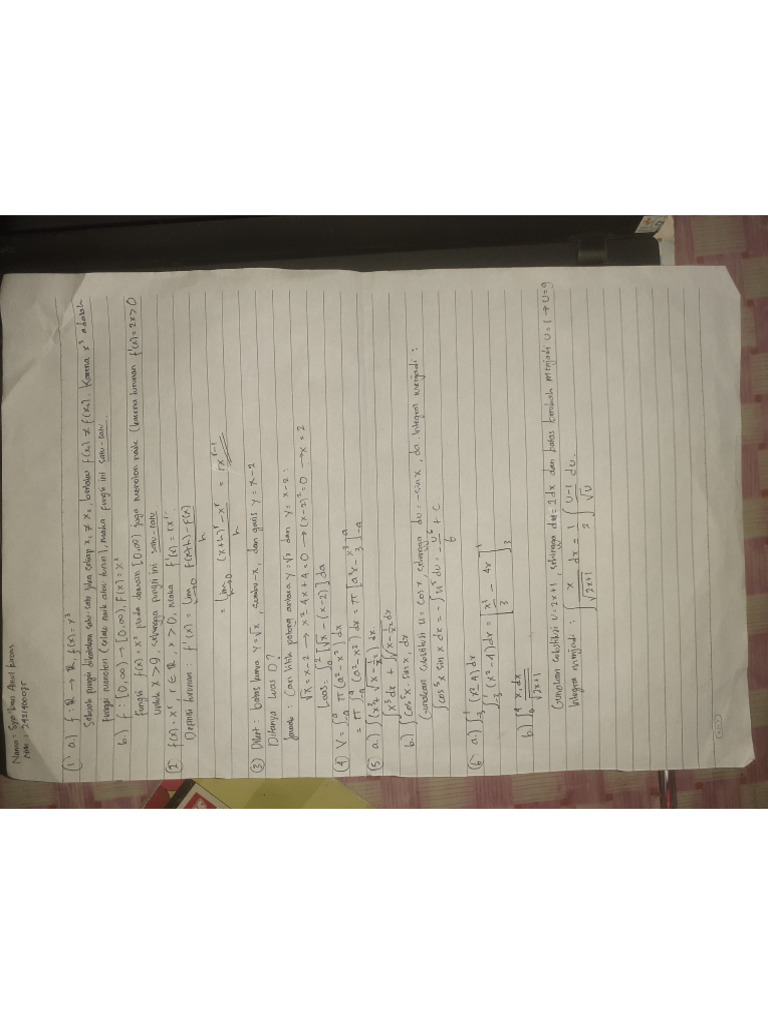 Nama:
NIM: 2421400075
(1) a.) f : ℝ → ℝ, f(x) = x³
Sebuah fungsi dikatakan satu-satu jika setiap x₁ ≠ x₂, berlaku f(x₁) ≠ f(x₂). Karena x³ adalah
fungsi monoton (selalu naik atau turun), maka fungsi ini satu-satu.
b.) f : [0,∞) → [0,∞), f(x) = x²
Fungsi f(x) = x² pada domain [0,∞) juga monoton naik (karena turunan f'(x) = 2x > 0
untuk x > 0, sehingga fungsi ini satu-satu
(2) f(x) = xʳ, r ∈ ℝ, x > 0, maka f'(x) = rxʳ⁻¹
Definisi turunan : f'(x) = lim h→0 f(x+h) - f(x) / h
= lim h→0 (x+h)ʳ - xʳ / h = rxʳ⁻¹
(3) Diket : batas kurva y = √x, sumbu-x, dan garis y = x-2
Ditanya luas D?
Jawab : Cari titik potong antara y = √x dan y = x-2 :
√x = x-2 → x² 4x + 4 = 0 → (x-2)² = 0 → x = 2
Luas = ∫₀² [√x - (x-2)] da
(4) V = ∫₋ₐᵃ π (a² - x²) dx
= π ∫₋ₐᵃ (a² - x²) dx = π [a²x - x³/3]₋ₐᵃ
(5) a.) ∫(x³ + √x - 1/x²) dx
∫x³ dx + ∫√x - 1/x² dx
b.) ∫cos⁵x . sin x, dx
Gunakan substitusi u = cos x, sehingga du = -sin x, dx. Integral menjadi :
∫cos⁵x sin x dx = -∫u⁵ du = -u⁶/6 + C
(6) a.) ∫₋₃¹ (x² - 4) dx
∫₋₃¹ (x² - 4) dx = [x³/3 - 4x]¹₃
b.) ∫₀⁴ x dx / √2x+1
Gunakan substitusi u = 2x+1, sehingga du = 2 dx dan batas berubah menjadi u = 1 → u = 9
Integral menjadi : ∫ x / √2x+1 dx = 1/2 ∫ u-1 / √u du.